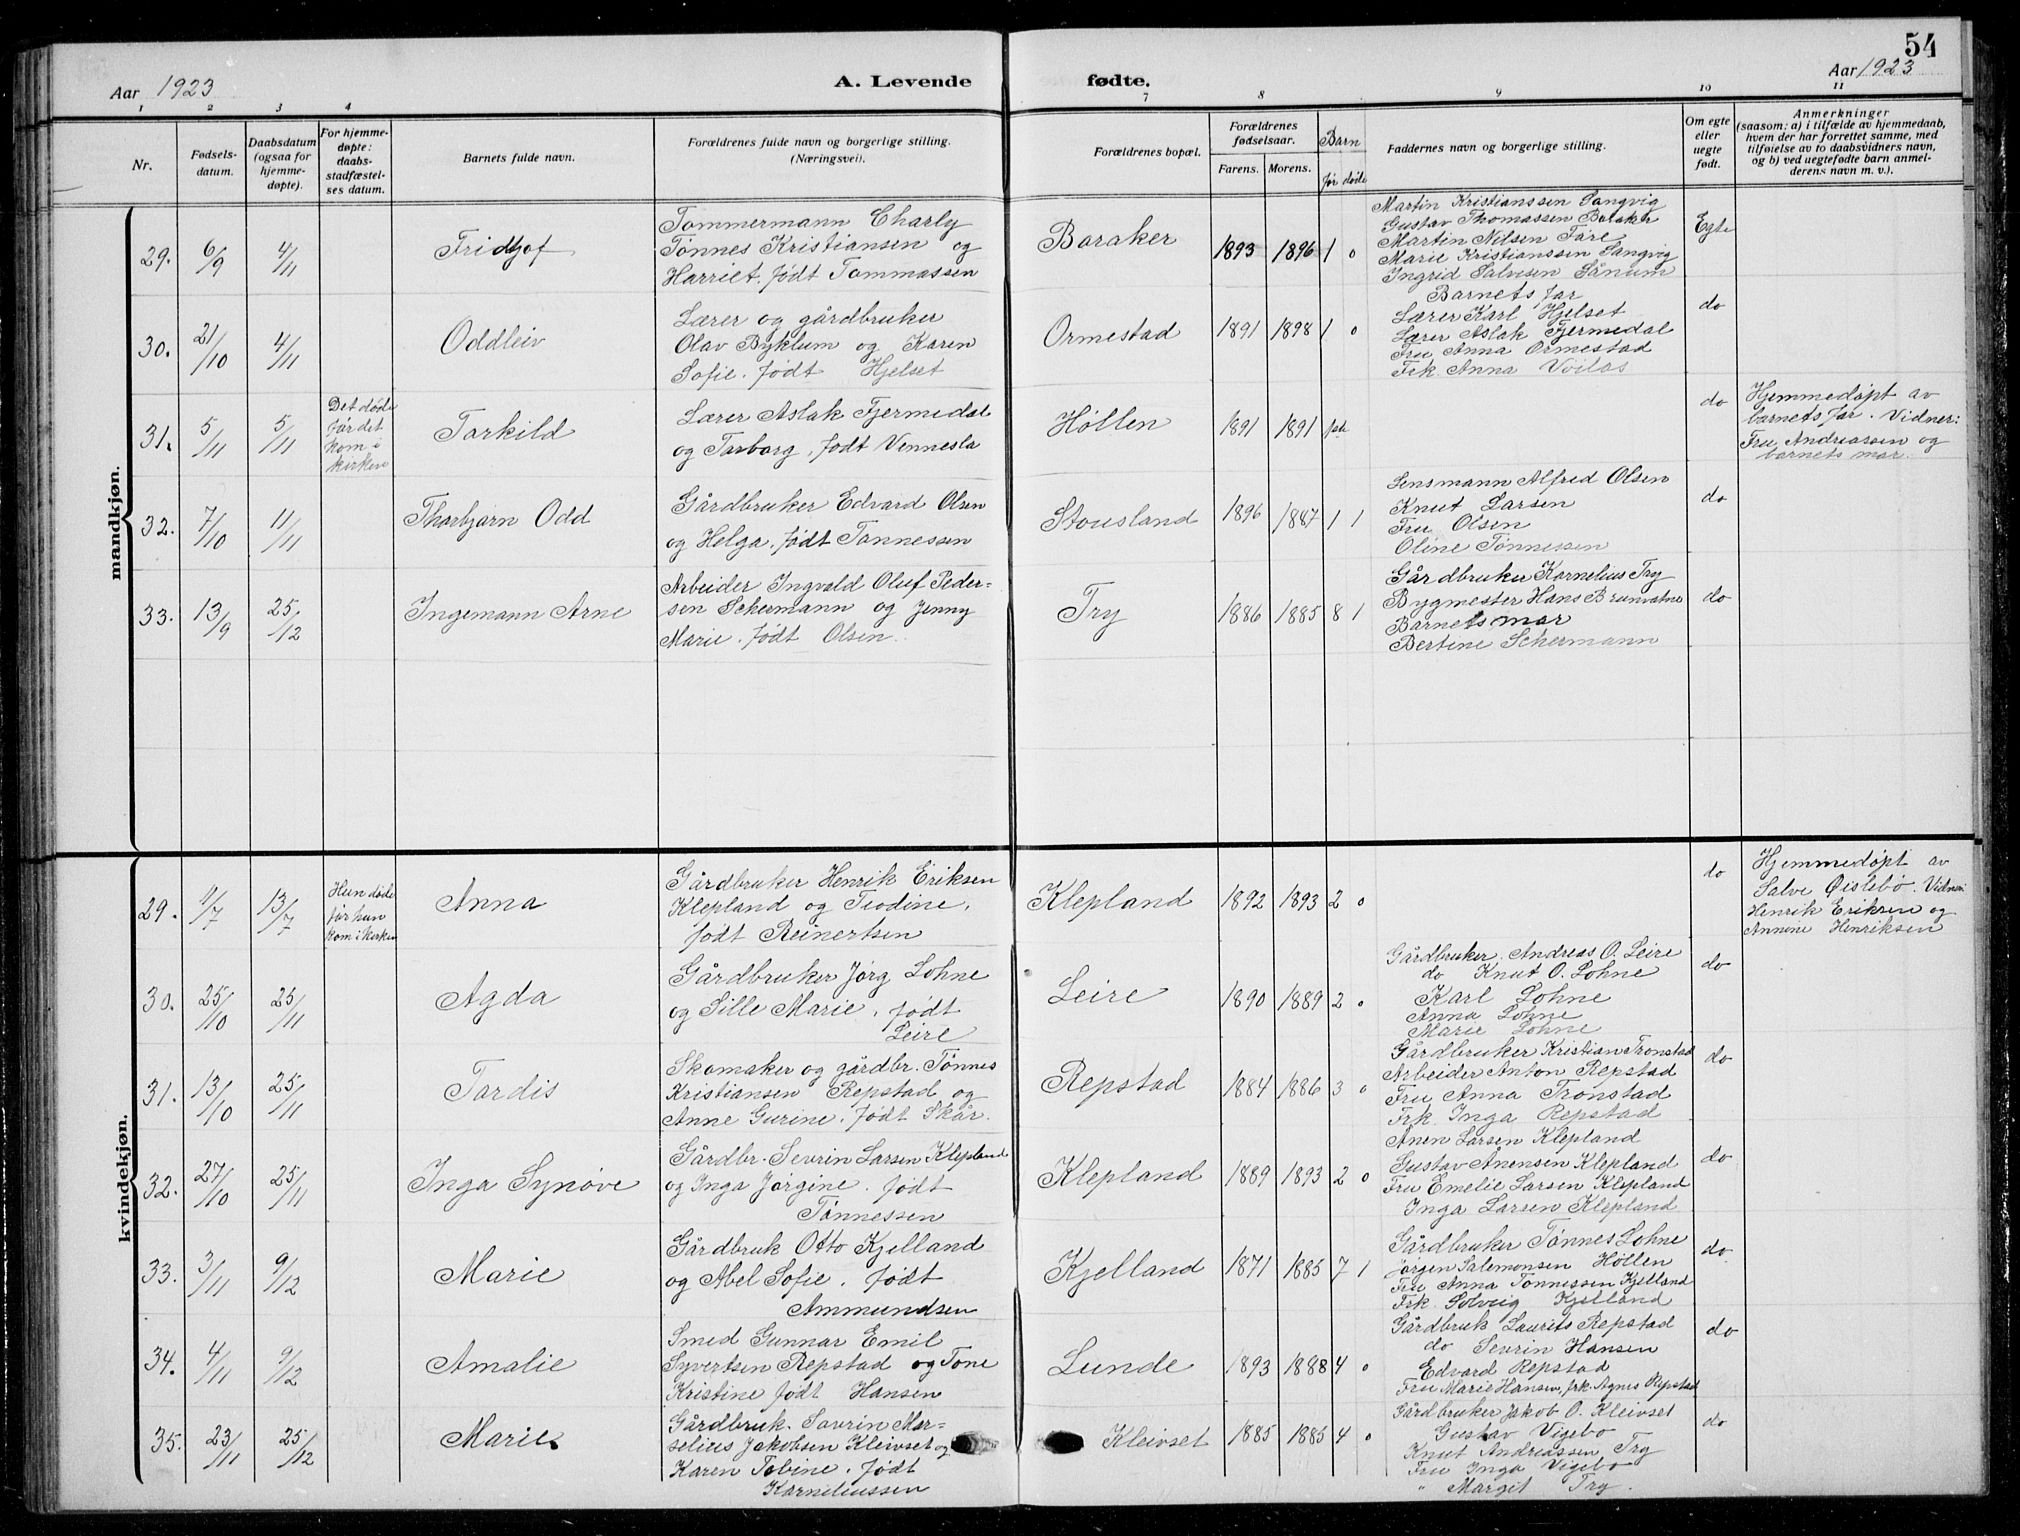 54
Aar 1923
A. Levende fødte.
Aar 1923
1 2 3 4 7 8 9 10 11
Nr.
Fødsels-
datum.
Daabsdatum
(ogsaa for
hjemme-
døpte).
For hjemme-
døpte:
daabs-
stadfæstel-
ses datum.
Barnets fulde navn.
Forældrenes fulde navn og borgerlige stilling.
(Næringsvei).
Forældrenes bopæl.
Forældrenes
fødselsaar.
Farens. Morens.
Barn
før døde
Faddernes navn og borgerlige stilling.
Om egte
eller
uegte
født.
Anmerkninger
(saasom: a) i tilfælde av hjemmedaab,
hvem der har forrettet samme, med
tilføielse av to daabsvidners navn,
og b) ved uegtefødte barn anmel-
derens navn m. v.).
mandkjøn.
29. 6/9 4/11 Fridtjof
Tømmermann Charly
Tønnes Kristiansen og
Harriet. født Tommassen
Baraker 1893 1896 1 0
Martin Kristianssen Sangvig
Gustav Thomassen Baraker
Martin Nilsen Fare
Marie Kristianssen Sangvig
Ingrid Salvesen Sånum
Egte
30. 21/10 4/11 Oddleiv
Lærer og gårdbruker
Olav Byklum og Karen
Sofie. født Hjelset
Ormestad 1891 1898 1 0
Barnets far
Lærer Karl Hjelset
Lærer Aslak Fjermedal
Fru Anna Ormestad
Frk. Anna Voilås
do
31. 5/11 5/11
Det døde
før det
kom i
kirken
Torkild
Lærer Aslak Fjermedal
og Torborg, født Vennesla
Høllen 1891 1891
do
Hjemmedøpt av
barnets far. Vidner:
Fru Andreassen og
barnets mor.
32. 7/10 11/11 Thorbjørn Odd
Gårdbruker Edvard Olsen
og Helga, født Tønnessen
Stousland 1896 1887 1 1
Lensmann Alfred Olsen
Knut Larsen
Fru Olsen
Oline Tønnessen
do
33. 13/9 25/12 Ingemann Arne
Arbeider Ingvald Oluf Peder-
sen Schermann og Jenny
Marie. født Olsen
Try 1886 1885 8 1
Gårdbruker Kornelius Try
Bygmester Hans Brunvatne
Barnets mor
Bertine Schermann
do
kvindekjøn.
29. 11/7 13/7
Hun døde
før hun
kom i kirken
Anna
Gårdbruker Henrik Eriksen
Klepland og Teodine,
født Reinertsen
Klepland 1892 1893 2 0
do
Hjemmedøpt av
Salve Øislebø. Vidner:
Henrik Eriksen og
Annine Henriksen
30. 25/10 25/11 Agda
Gårdbruker Jørg Lohne
og Sille Marie, født
Leire
Leire 1890 1889 2 0
Gårdbruker Andreas O. Leire
do Knut O. Lohne
Karl Lohne
Anna Lohne
Marie Lohne
do
31. 13/10 25/11 Tordis
Skomaker og gårdbr. Tønnes
Kristiansen Repstad og
Anne Gurine. født Skår.
Repstad 1884 1886 3 0
Gårdbruker Kristian Tronstad
Arbeider Anton Repstad
Fru Anna Tronstad
Frk. Inga Repstad
do
32. 27/10 25/11 Inga Synøve
Gårdbr. Sevrin Larsen Klepland
og Inga Jørgine. født
Tønnessen
Klepland 1889 1893 2 0
Anen Larsen Klepland
Gustav Ånensen Klepland
Fru Emelie Larsen Klepland
Inga Larsen Klepland
do
33. 3/11 9/12 Marie
Gårdbruk Otto Kjelland
og Abel Sofie. født
Ammundsen
Kjelland 1871 1885 7 1
Gårdbruker Tønnes Lohne
Jørgen Salemonsen Høllen
Fru Anna Tønnessen Kjelland
Frk. Solveig Kjelland
do.
34. 4/11 9/12 Amalie
Smed Gunnar Emil
Syvertsen Repstad og Tone
Kristine født Hansen
Lunde 1893 1888 4 0
Gårdbruk Laurits Repstad
do Sevrin Hansen
Edvard Repstad
Fru Marie Hansen, frk. Agnes Repstad
do
35. 23/11 25/12 Marie
Gårdbruk. Savrin Mar-
selius Jakobsen Kleivset og
Karen Tobine. født
Korneliussen
Kleivset 1885 1885 4 0
Gårdbruker Jakob O. Kleivset
Gustav Vigebo
Knut Andreassen Try
Fru Inga Vigebo
" Margit Try.
do